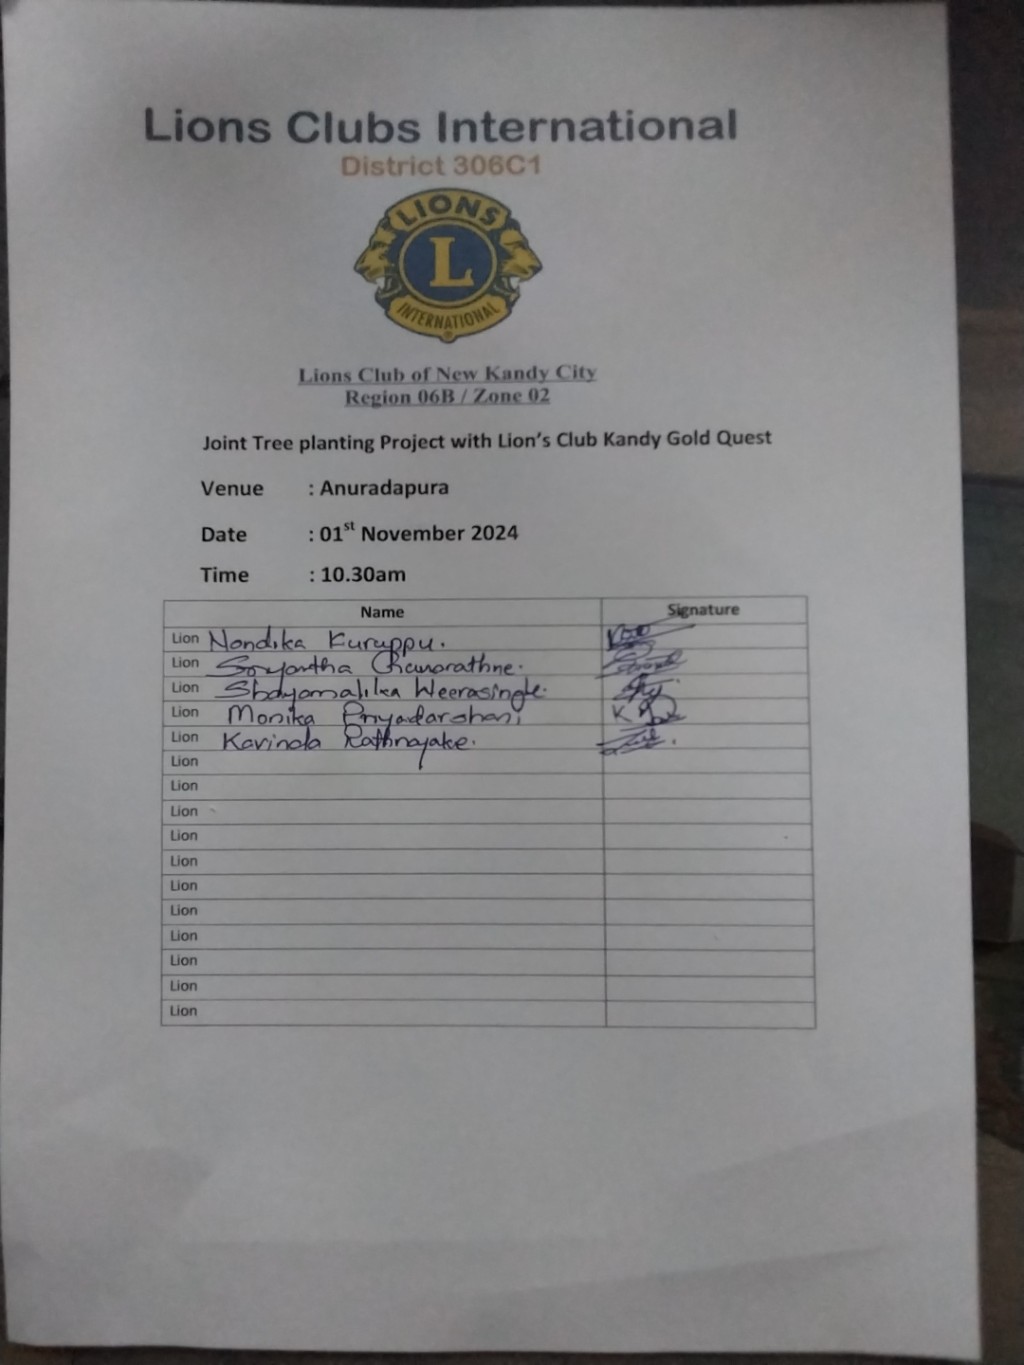 Lions Clubs International
District 306C1
LIONS
L
INTERNATIONAL
Lions Club of New Kandy City
Region 06B / Zone 02
Joint Tree planting Project with Lion's Club Kandy Gold Quest
Venue : Anuradapura
Date : 01st November 2024
Time : 10.30am
Name Signature
Lion Nandika Kuruppu.
Lion
Lion Shayamalika Weerasingle.
Lion Monika Priyadarshani
Lion Kavinda Rathnayake.
Lion
Lion
Lion
Lion
Lion
Lion
Lion
Lion
Lion
Lion
Lion